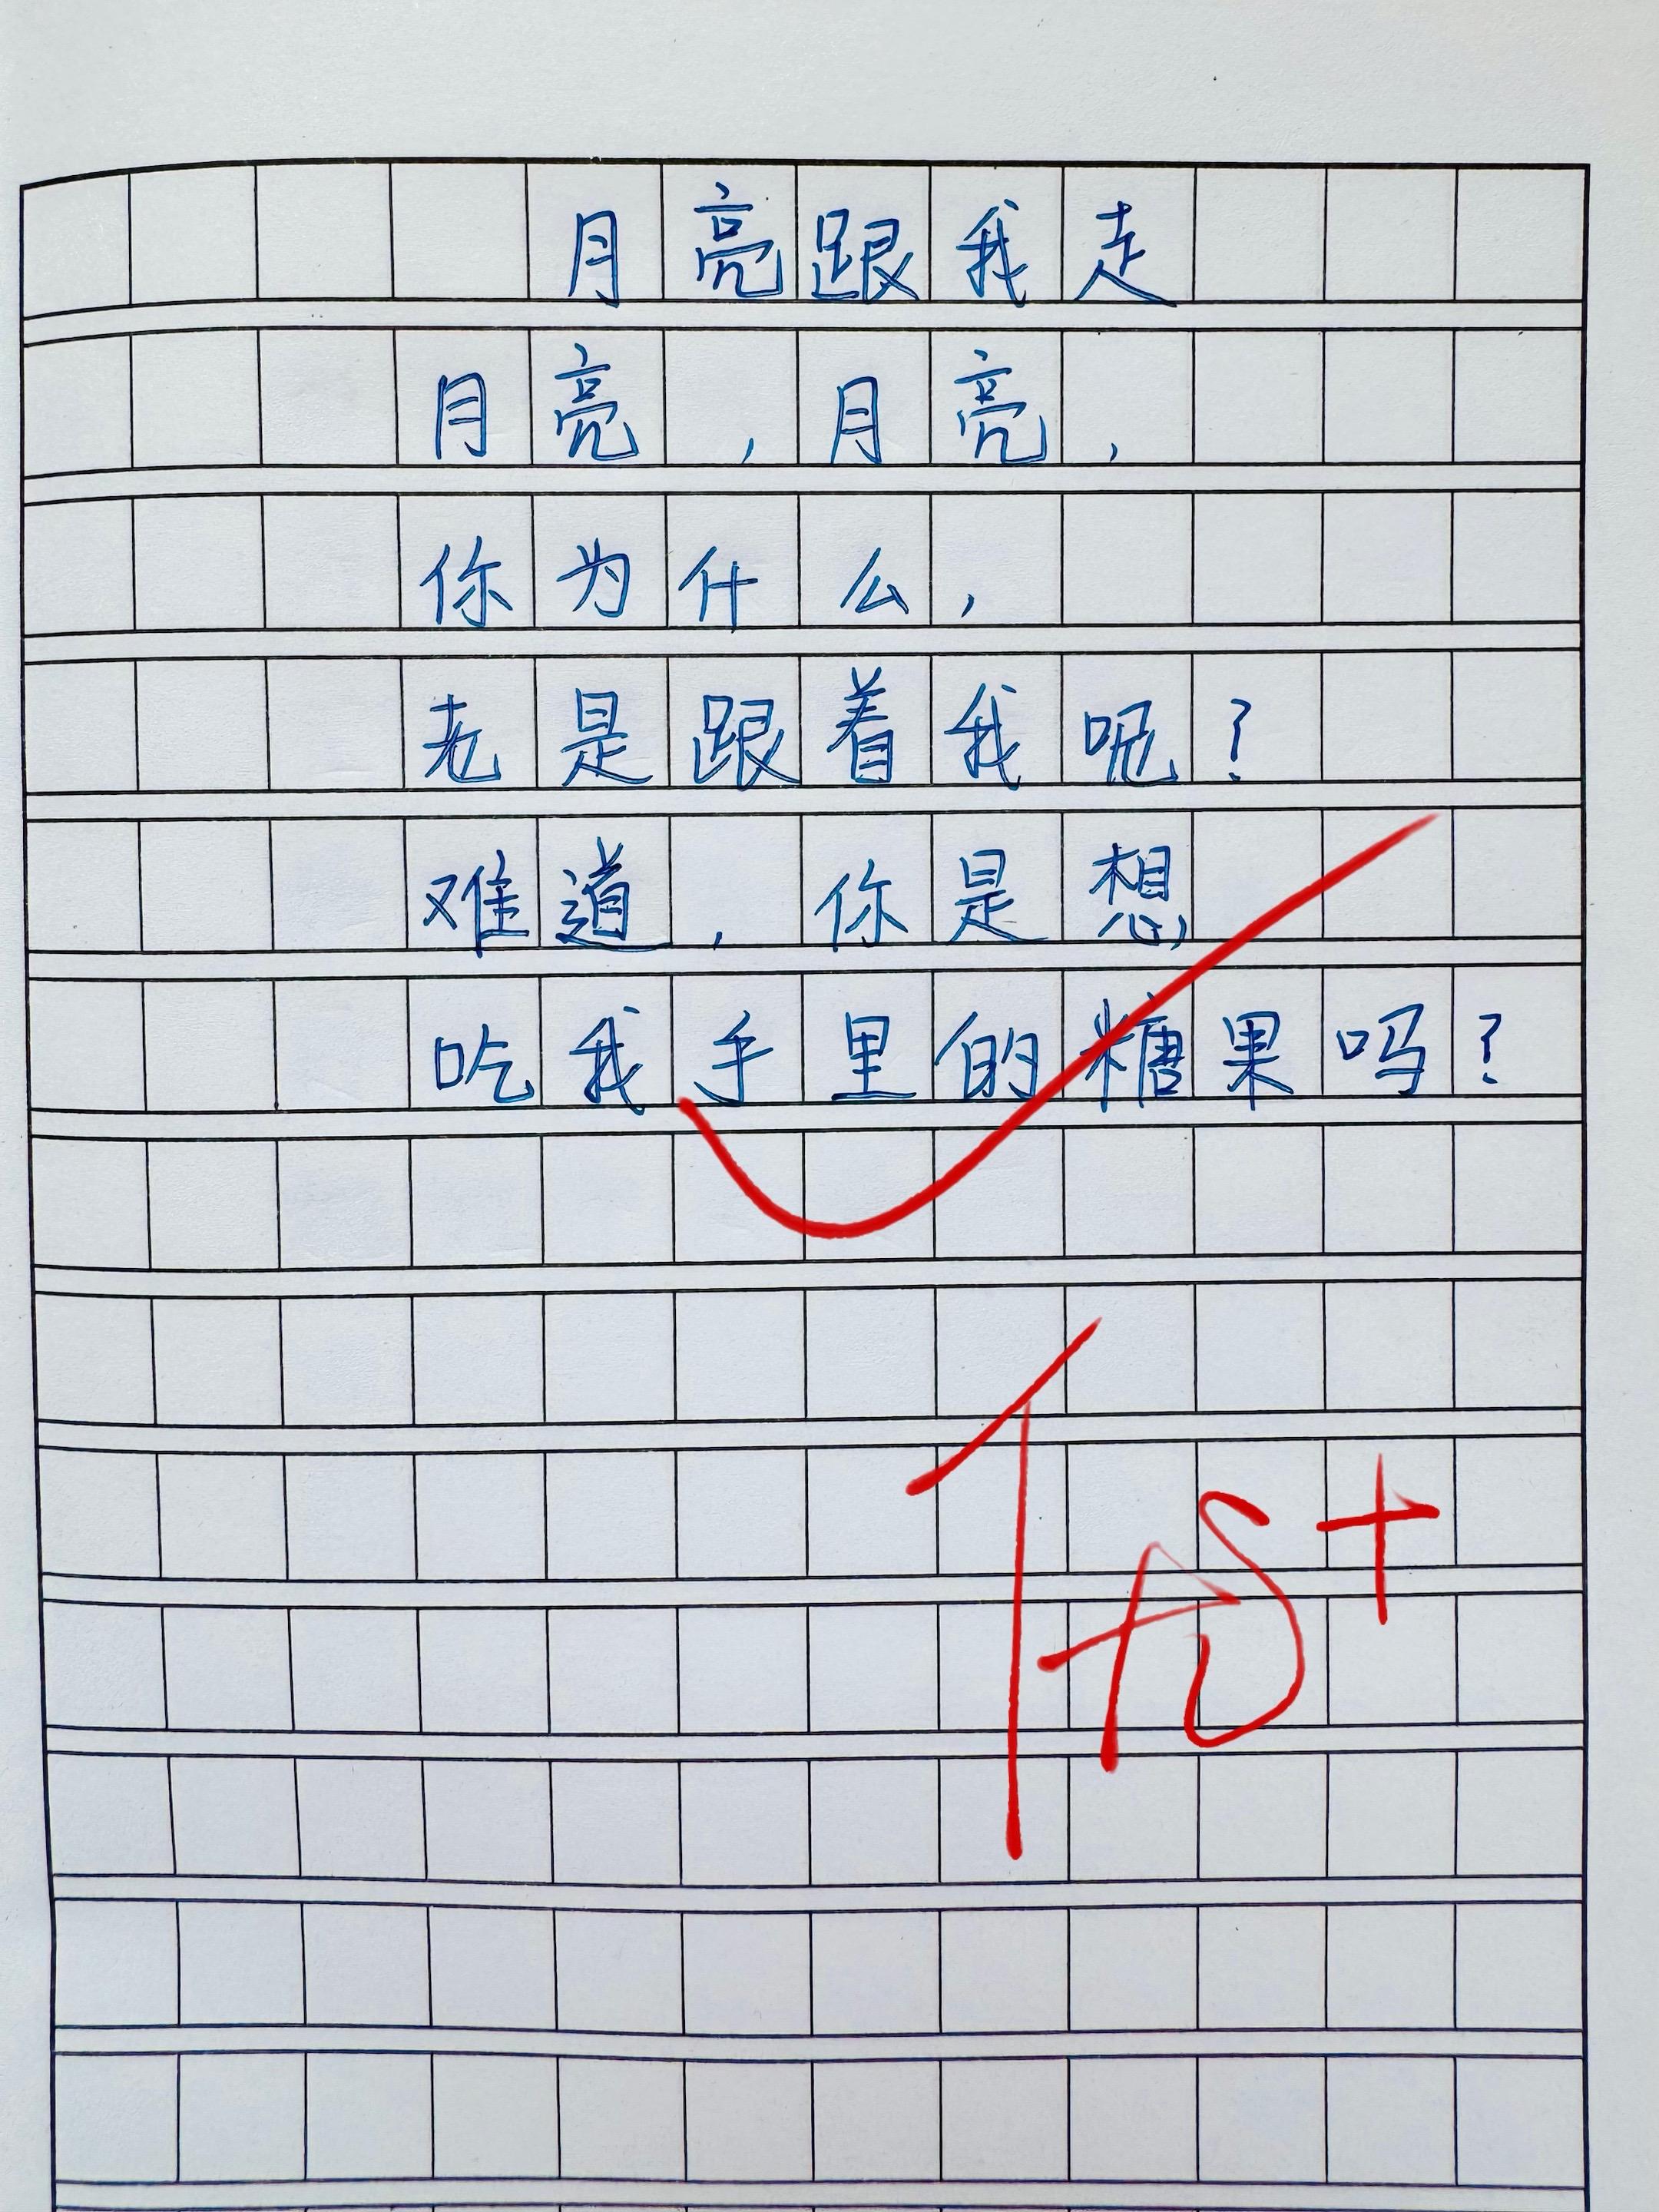 月亮跟我走
月亮，月亮，
你为什么，
老是跟着我呢？
难道，你是想，
吃我手里的糖果吗？